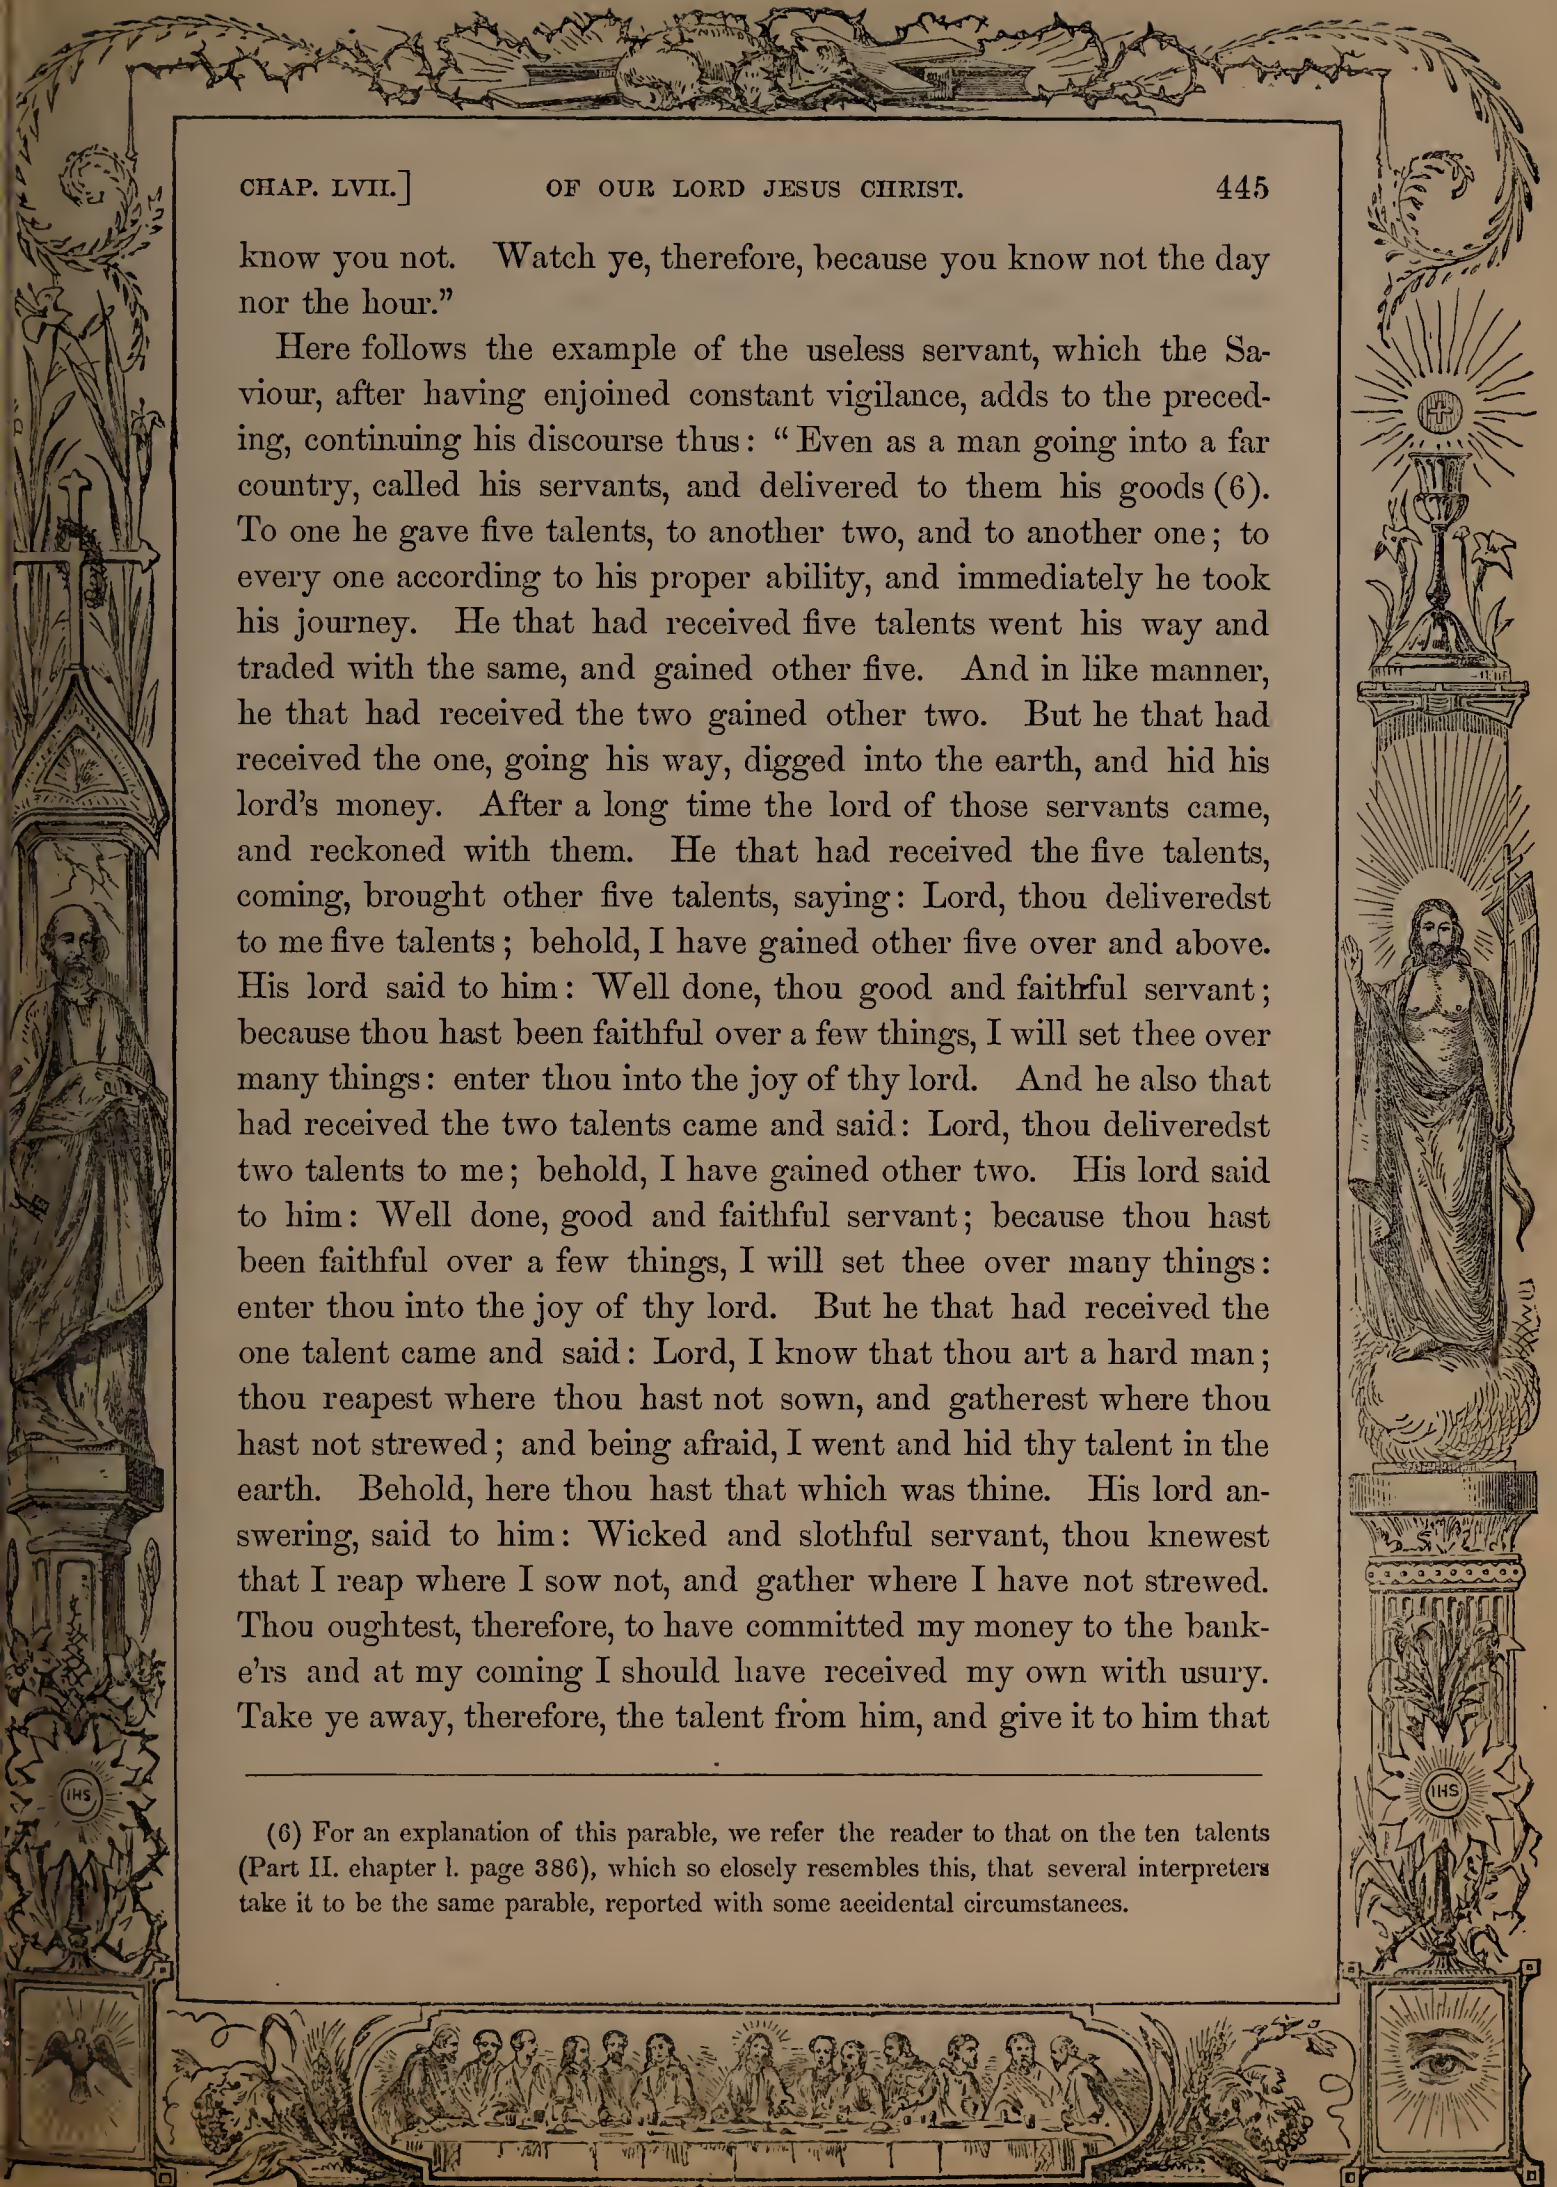 CHAP. LVII.] OF OUR LORD JESUS CHRIST. 445
know you not. Watch ye, therefore, because you know not the day
nor the hour.”
Here follows the example of the useless servant, which the Sa-
viour, after having enjoined constant vigilance, adds to the preced-
ing, continuing his discourse thus: “Even as a man going into a far
country, called his servants, and delivered to them his goods (6).
To one he gave five talents, to another two, and to another one; to
every one according to his proper ability, and immediately he took
his journey. He that had received five talents went his way and
traded with the same, and gained other five. And in like manner,
he that had received the two gained other two. But he that had
received the one, going his way, digged into the earth, and hid his
lord’s money. After a long time the lord of those servants came,
and reckoned with them. He that had received the five talents,
coming, brought other five talents, saying: Lord, thou deliveredst
to me five talents; behold, I have gained other five over and above.
His lord said to him: Well done, thou good and faithful servant;
because thou hast been faithful over a few things, I will set thee over
many things: enter thou into the joy of thy lord. And he also that
had received the two talents came and said: Lord, thou deliveredst
two talents to me; behold, I have gained other two. His lord said
to him: Well done, good and faithful servant; because thou hast
been faithful over a few things, I will set thee over many things:
enter thou into the joy of thy lord. But he that had received the
one talent came and said: Lord, I know that thou art a hard man;
thou reapest where thou hast not sown, and gatherest where thou
hast not strewed; and being afraid, I went and hid thy talent in the
earth. Behold, here thou hast that which was thine. His lord an-
swering, said to him: Wicked and slothful servant, thou knewest
that I reap where I sow not, and gather where I have not strewed.
Thou oughtest, therefore, to have committed my money to the bank-
e’rs and at my coming I should have received my own with usury.
Take ye away, therefore, the talent from him, and give it to him that
(6) For an explanation of this parable, we refer the reader to that on the ten talents
(Part II. chapter l. page 386), which so closely resembles this, that several interpreters
take it to be the same parable, reported with some accidental circumstances.
IHS
IHS